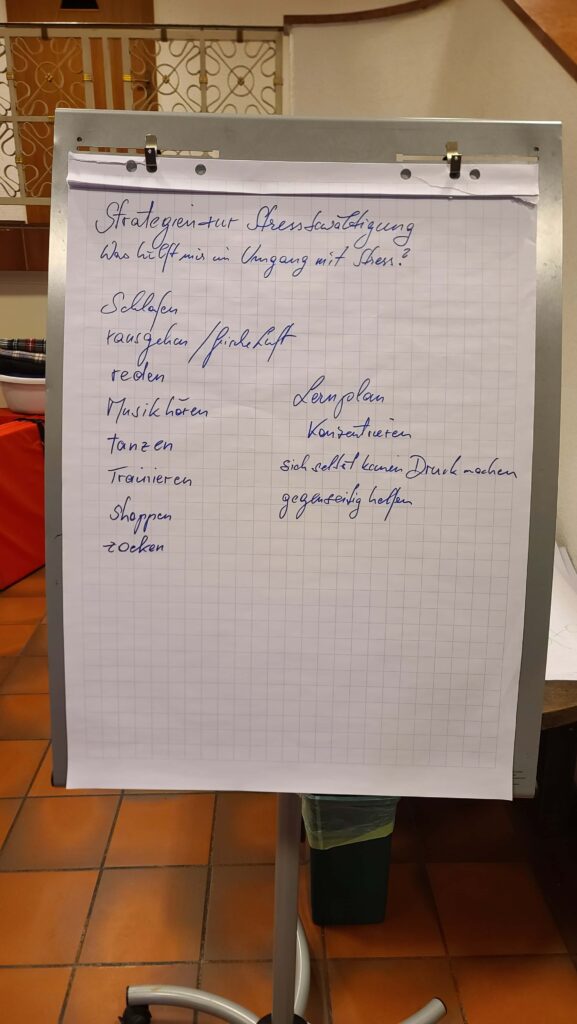 Strategien zur Stressbewältigung
Was hilft mir im Umgang mit Stress?
Schlafen
rausgehen / frische Luft
reden
Musik hören
tanzen
Trainieren
shoppen
zocken
Lernplan
Konzentrieren
sich selbst keinen Druck machen
gegenseitig helfen